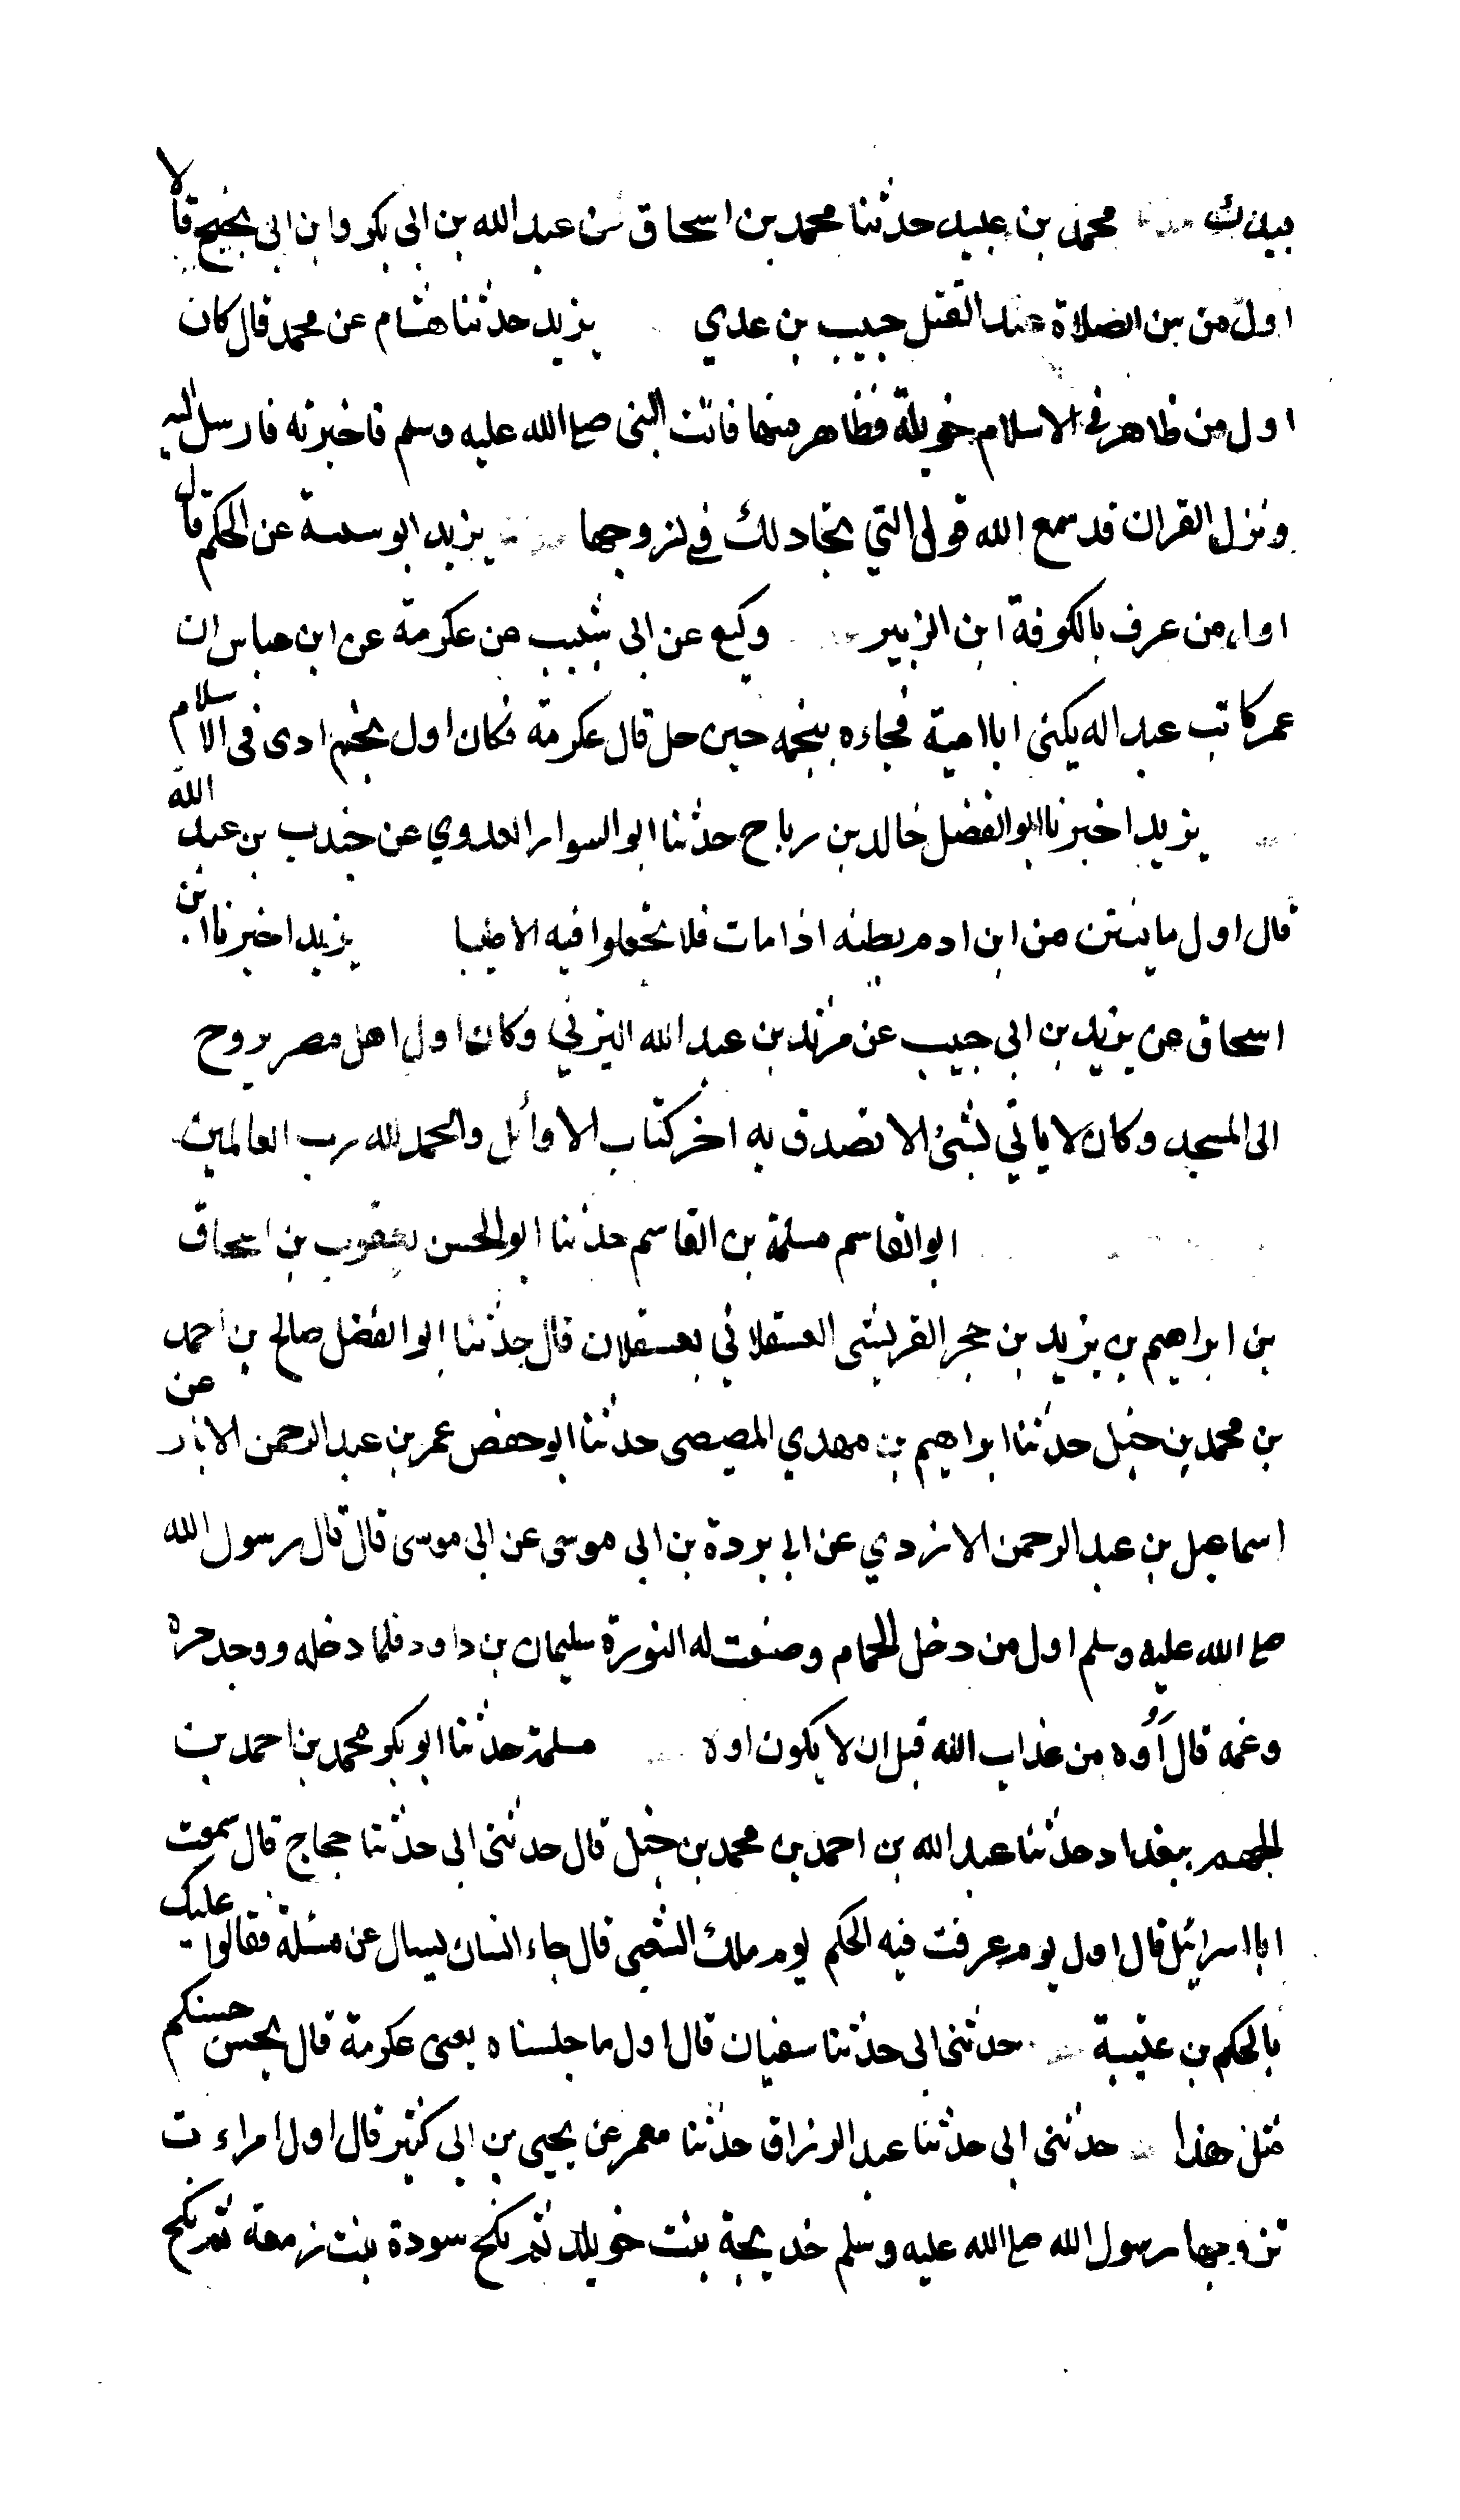 بيدك حدثنا محمد بن عبيد حدثنا محمد بن اسحاق عن عبد الله بن ابي بكر وابن ابي نجيح قالا
اول من سن الصلاة عند القتل خبيب بن عدي يزيد حدثنا هشام عن محمد قال كان
اول من ظاهر في الاسلام خويلة فظاهر منها فاتت النبي صلع الله عليه وسلم فاخبرته فارسل اليه
ونزل القران قد سمع الله قول التي تجادلك في زوجها يزيد ابو سعسة عن الحكم قال
اول من عرف بالكوفة ابن الزبير وكيع عن ابي شبيب عن عكرمة عن ابن عباس ان
عمر كاتب عبد اله يكنى ابا امية فجاءه بنجمه حين حل قال عكرمة فكان اول نجم ادى في الاسلام
يزيد اخبرنا ابو الفضل خالد بن رباح حدثنا ابو السوار العدوي عن جندب بن عبد الله
قال اول ما ينتن من ابن ادم بطنه اذا مات فلا تجعلوا فيه الا طيبا يزيد اخبرنا ابن
اسحاق عن يزيد بن ابي حبيب عن مرثد بن عبد الله اليزني وكان اول اهل مصر يروح
الى المسجد وكان لا ياتي بشئ الا تصدق به اخر كتاب الاوائل والحمد لله رب العالمين
ابو القاسم مسلمة بن القاسم حدثنا ابو الحسن يعقوب بن اسحاق
بن ابراهيم بن يزيد بن حجر القريشي العسقلاني بعسقلان قال حدثنا ابو الفضل صالح بن احمد
بن محمد بن حنبل حدثنا ابراهيم بن مهدي المصيصى حدثنا ابو حفص عمر بن عبد الرحمن الابار عن
اسماعيل بن عبد الرحمن الازدي عن ابي بردة بن ابى موسى عن ابي موسى قال قال رسول الله
صلع الله عليه وسلم اول من دخل الحمام وصنعت له النورة سليمان بن داود فلما دخله ووجد حره
وغمه قال أوه من عذاب الله قبل ان لا يكون اوه مسلمة حدثنا ابو بكر محمد بن احمد بن
الجهم ببغداد حدثنا عبد الله بن احمد بن محمد بن حنبل قال حدثنى ابى حدثنا حجاج قال سمعت
ابا اسرائيل قال اول يوم عرفت فيه الحكم يوم ملك الشعبي قال جاء انسان ليسال عن مسئلة فقالوا عليك
بالحكم بن عتيبة حدثنى ابى حدثنا سفيان قال اول ما جلسناه يعنى عكرمة قال يحسن حسنكم
مثل هذا حدثنى ابى حدثنا عبد الرزاق حدثنا معمر عن يحيى بن ابي كثير قال اول امراءت
تزوجها رسول الله صلع الله عليه وسلم خديجة بنت خويلد ثم نكح سودة بنت زمعة ثم نكح